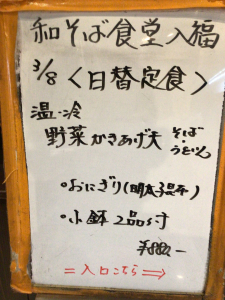 和そば食堂入福
3/8 <日替定食>
温・冷
野菜かきあげ天 そば・うどん
・おにぎり(明太子昆布)
・小鉢2品付
¥880-
=入口こちら⇒